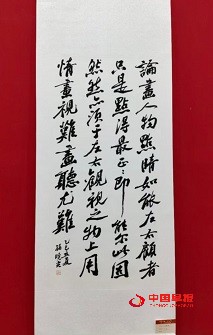 論畫人物點睛如能左右顧者
只是點得最正即能尔此固
然然亦須于左右觀視之物上用
情畫視難畫聽尤難
中国早报